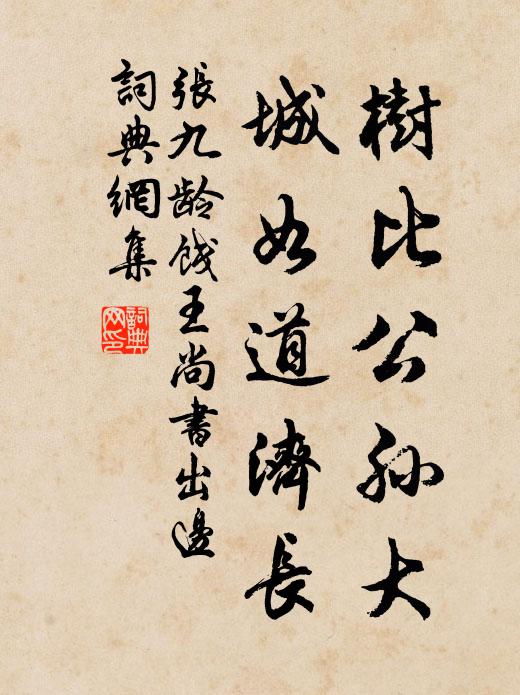 樹比公孫大
城如道濟長
張九齡餞王尚書出邊
詞典網集
詞典
网印